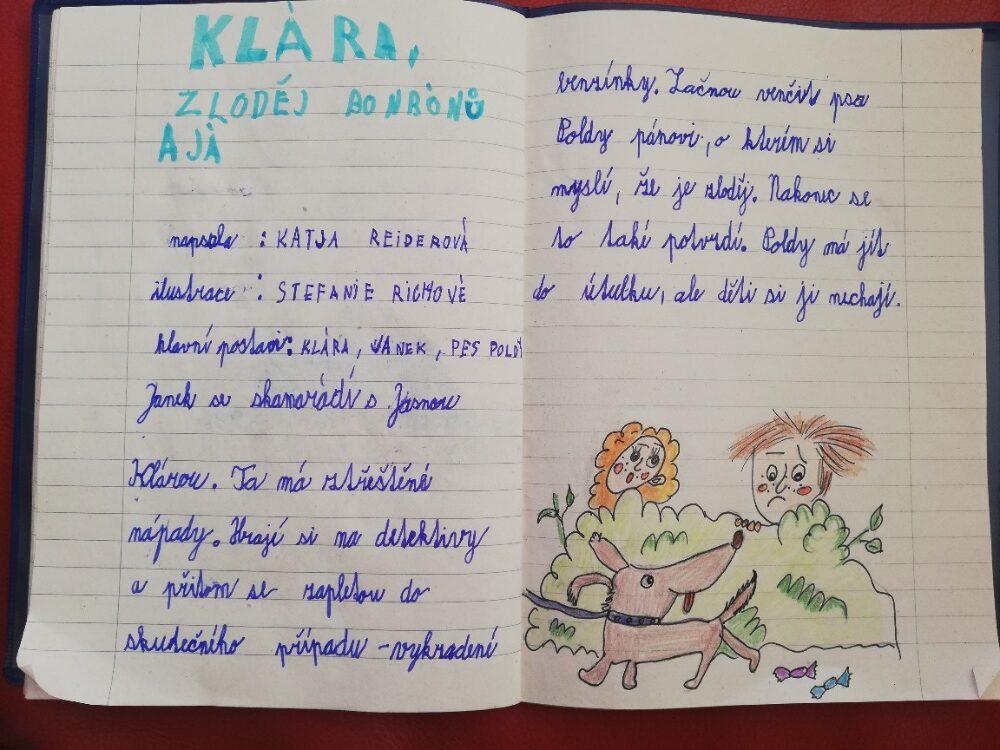 KLÁRA,
ZLODĚJ BONBÓNŮ
A JÁ
napsala : KATJA REIDEROVÁ
ilustrace : STEFANIE RICHOVÉ
hlavní postavi: KLÁRA, JANEK, PES POLDY
Janek se skamarádí s Jasnou
Klárou. Ta má ztřeštěné
nápady. Hrají si na detektivy
a přitom se zapletou do
skudečného případu - vykradení
benzínky. Začnou venčit psa
Poldy pánovi, o kterím si
myslí, že je zloděj. Nakonec se
to také potvrdí. Poldy má jít
do útulku, ale děti si ji nechají.